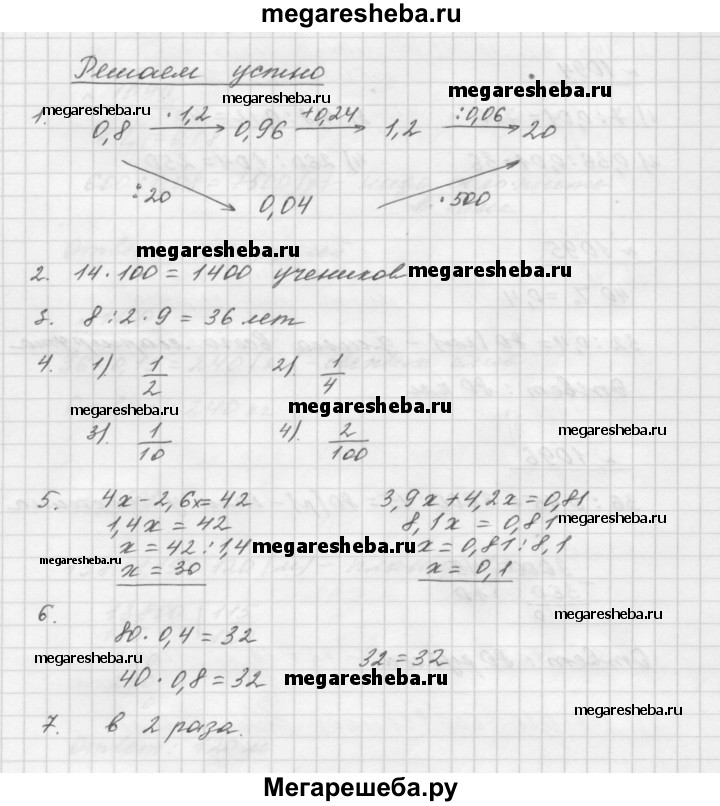 megaresheba.ru
Решаем устно
megaresheba.ru megaresheba.ru megaresheba.ru
1. 0,8 ·1,2 → 0,96 +0,24 → 1,2 :0,06 → 20
:20 → 0,04 ·500
megaresheba.ru
2. 14·100 = 1400 учеников megaresheba.ru
3. 8:2·9 = 36 лет
4. 1) 1/2 2) 1/4
megaresheba.ru megaresheba.ru megaresheba.ru
3) 1/10 4) 2/100
5. 4x-2,6x=42 3,9x+4,2x=0,81
1,4x = 42 8,1x = 0,81 megaresheba.ru
x = 42:1,4 megaresheba.ru x = 0,81:8,1
megaresheba.ru x = 30 x = 0,1
6. megaresheba.ru
80·0,4 = 32
megaresheba.ru 32 = 32
40·0,8 = 32 megaresheba.ru
7. в 2 раза. megaresheba.ru
Мегарешеба.ру